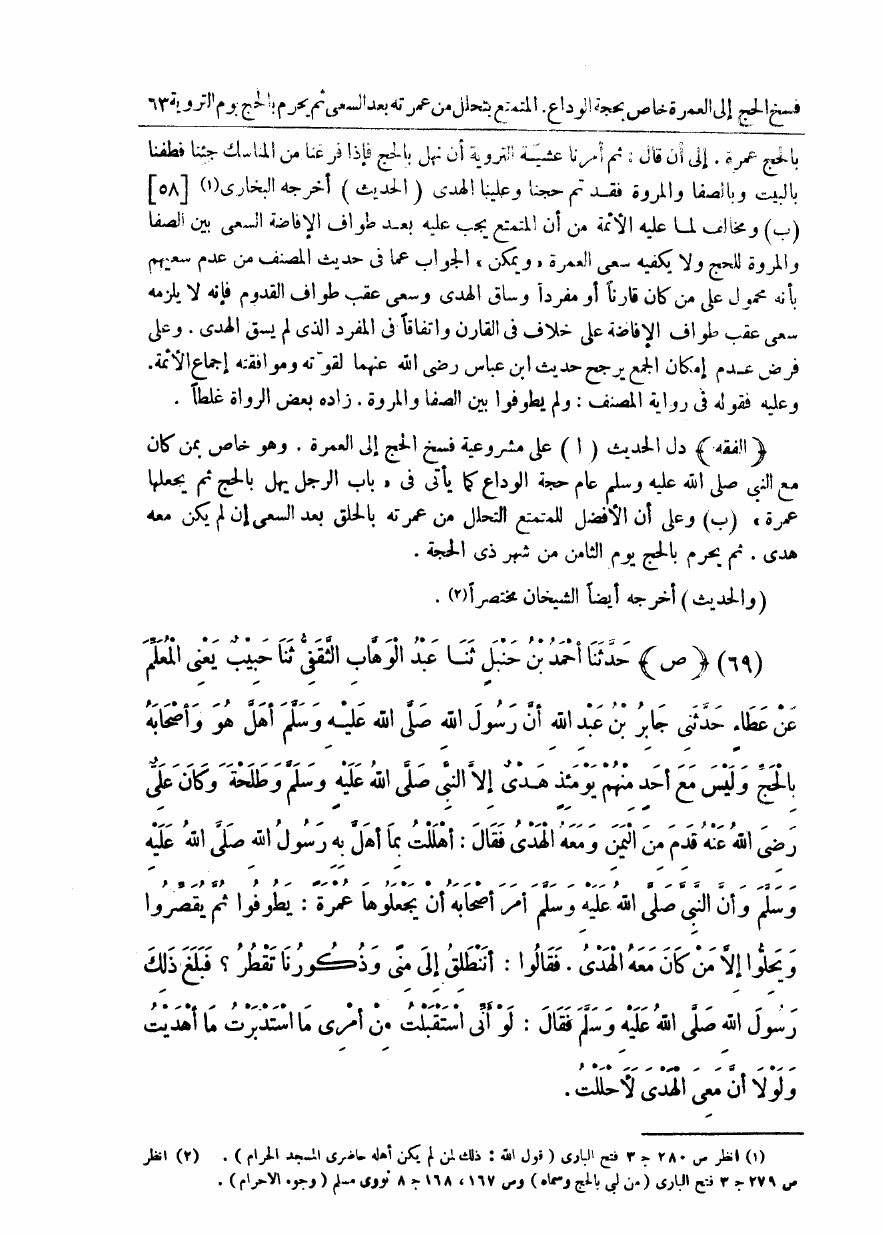 فسخ الحج إلى العمرة خاص بحجة الوداع. المتمتع يتحلل من عمرته بعد السعى ثم يحرم بالحج يوم التروية ٦٣
بالحج عمرة . إلى أن قال : ثم أمرنا عشيّة التروية أن نهل بالحج فإذا فرغنا من المناسك جئنا فطفنا
بالبيت وبالصفا والمروة فقد تم حجنا وعلينا الهدى ( الحديث ) أخرجه البخارى(١) [٥٨]
(ب) ومخالف لما عليه الأئمة من أن المتمتع يجب عليه بعد طواف الإفاضة السعى بين الصفا
والمروة للحج ولا يكفيه سعى العمرة «ويمكن» الجواب عما فى حديث المصنف من عدم سعيهم
بأنه محمول على من كان قارناً أو مفرداً وساق الهدى وسعى عقب طواف القدوم فإنه لا يلزمه
سعى عقب طواف الإفاضة على خلاف فى القارن واتفاقاً فى المفرد الذى لم يسق الهدى . وعلى
فرض عدم إمكان الجمع يرجح حديث ابن عباس رضى الله عنهما لقوّته وموافقته إجماع الأئمة.
وعليه فقوله فى رواية المصنف : ولم يطوفوا بين الصفا والمروة . زاده بعض الرواة غلطاً .
﴿الفقه﴾ دل الحديث ( ا ) على مشروعية فسخ الحج إلى العمرة . وهو خاص بمن كان
مع النبي صلى الله عليه وسلم عام حجة الوداع كما يأتى فى « باب الرجل يهل بالحج ثم يجعلها
عمرة » (ب) وعلى أن الأفضل للمتمتع التحلل من عمرته بالحلق بعد السعى إن لم يكن معه
هدى . ثم يحرم بالحج يوم الثامن من شهر ذى الحجة .
(والحديث) أخرجه أيضاً الشيخان مختصراً(٢) .
(٦٩) ﴿ص﴾ حَدَّثَنَا أَحْمَدُ بْنُ حَنْبَلٍ ثَنَا عَبْدُ الْوَهَّابِ الثَّقَفِىُّ ثَنَا حَبِيبٌ يَعْنِى الْمُعَلِّمَ
عَنْ عَطَاءٍ حَدَّثَنِى جَابِرُ بْنُ عَبْدِ اللهِ أَنَّ رَسُولَ اللهِ صَلَّى اللهُ عَلَيْهِ وَسَلَّمَ أَهَلَّ هُوَ وَأَصْحَابُهُ
بِالْحَجِّ وَلَيْسَ مَعَ أَحَدٍ مِنْهُمْ يَوْمَئِذٍ هَدْىٌ إِلاَّ النَّبِىَّ صَلَّى اللهُ عَلَيْهِ وَسَلَّمَ وَطَلْحَةَ وَكَانَ عَلِىٌّ
رَضِىَ اللهُ عَنْهُ قَدِمَ مِنَ الْيَمَنِ وَمَعَهُ الْهَدْىُ فَقَالَ : أَهْلَلْتُ بِمَا أَهَلَّ بِهِ رَسُولُ اللهِ صَلَّى اللهُ عَلَيْهِ
وَسَلَّمَ وَأَنَّ النَّبِىَّ صَلَّى اللهُ عَلَيْهِ وَسَلَّمَ أَمَرَ أَصْحَابَهُ أَنْ يَجْعَلُوهَا عُمْرَةً : يَطُوفُوا ثُمَّ يُقَصِّرُوا
وَيَحِلُّوا إِلاَّ مَنْ كَانَ مَعَهُ الْهَدْىُ . فَقَالُوا : أَنَنْطَلِقُ إِلَى مِنًى وَذُكُورُنَا تَقْطُرُ ؟ فَبَلَغَ ذَلِكَ
رَسُولَ اللهِ صَلَّى اللهُ عَلَيْهِ وَسَلَّمَ فَقَالَ : لَوْ أَنِّى اسْتَقْبَلْتُ مِنْ أَمْرِى مَا اسْتَدْبَرْتُ مَا أَهْدَيْتُ
وَلَوْلاَ أَنَّ مَعِى الْهَدْىَ لَأَحْلَلْتُ.
(١) انظر ص ٢٨٠ ج ٣ فتح البارى ( قول الله : ذلك لمن لم يكن أهله حاضرى المسجد الحرام ) . (٢) انظر
ص ٢٧٩ ج ٣ فتح البارى ( من لبى بالحج وسماه ) وص ١٦٧ ، ١٦٨ ج ٨ نووى مسلم ( وجوه الاحرام ) .